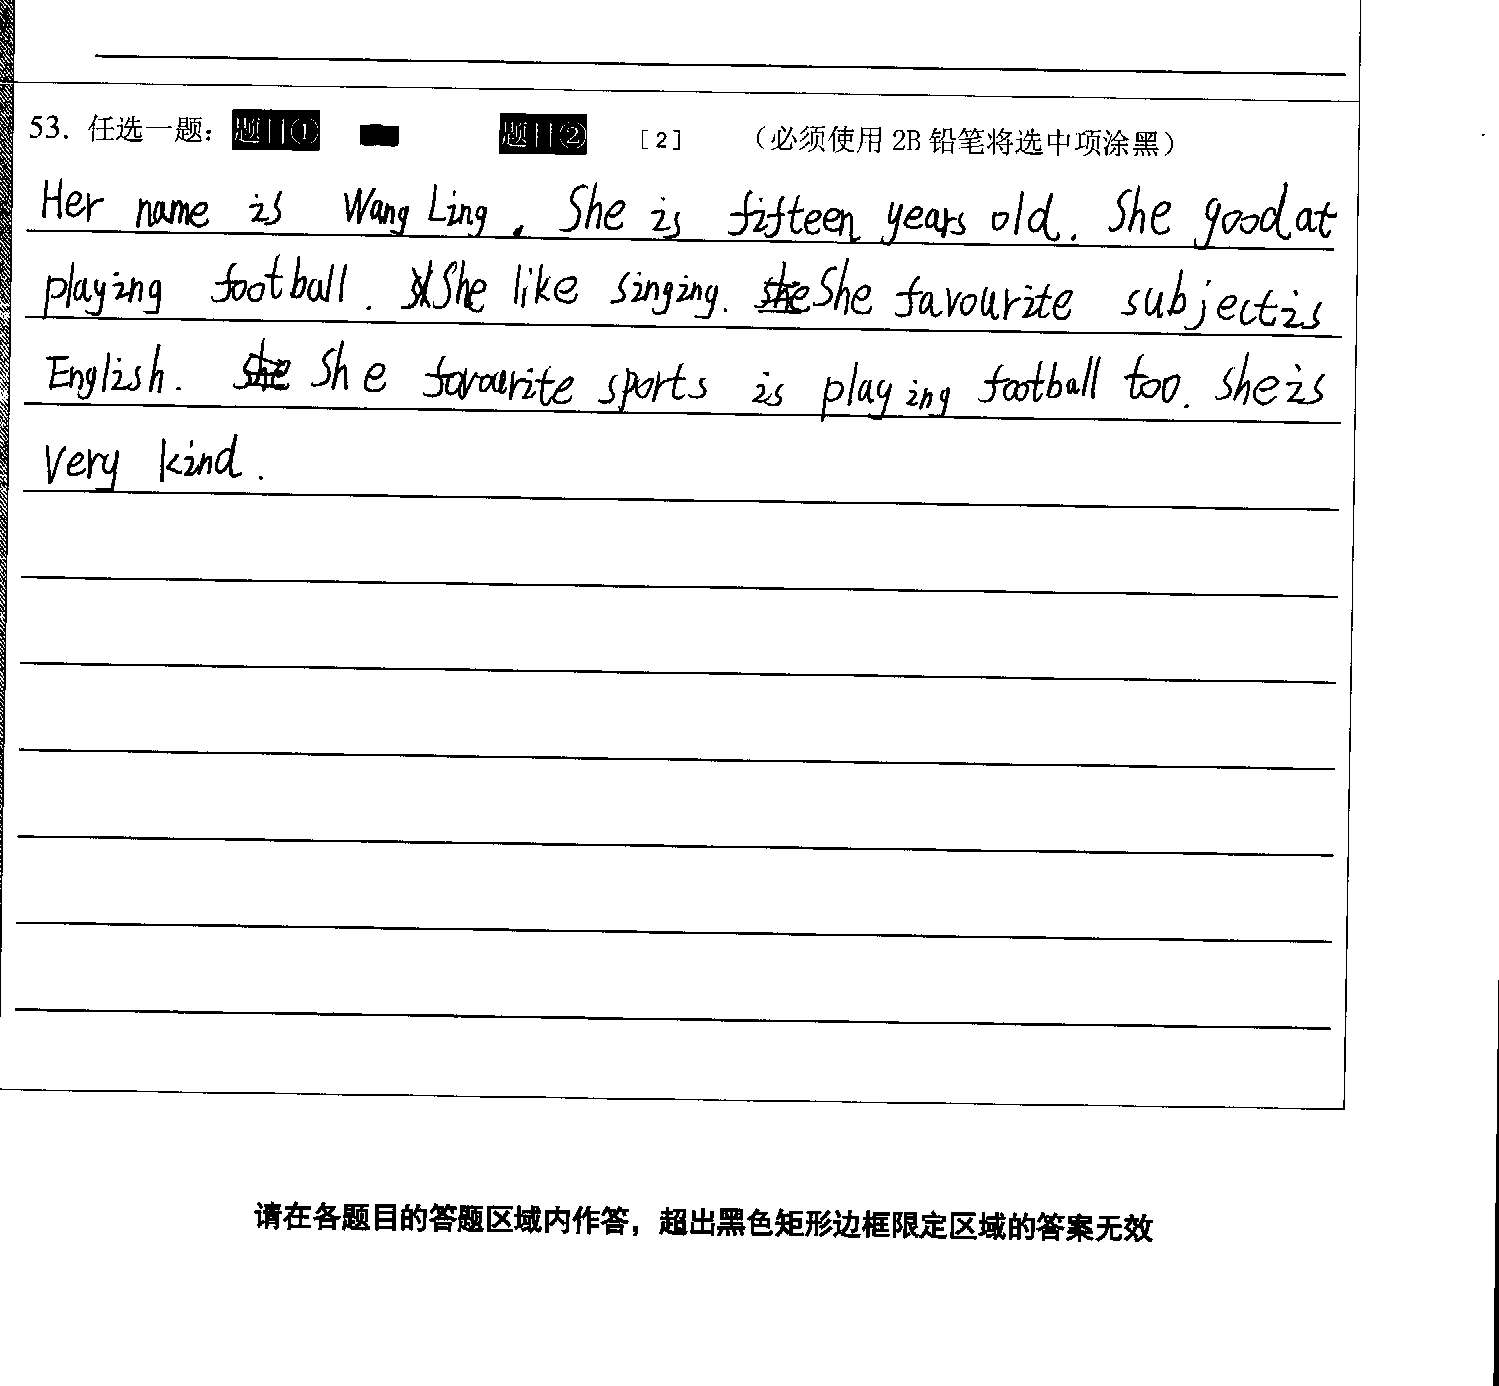 53. 任选一题： 题目① 题目② [2] （必须使用 2B 铅笔将选中项涂黑）
Her name is Wang Ling. She is fifteen years old. She good at
playing football. She like singing. She favourite subject is
English. She favourite sports is playing football too. She is
very kind.
请在各题目的答题区域内作答，超出黑色矩形边框限定区域的答案无效